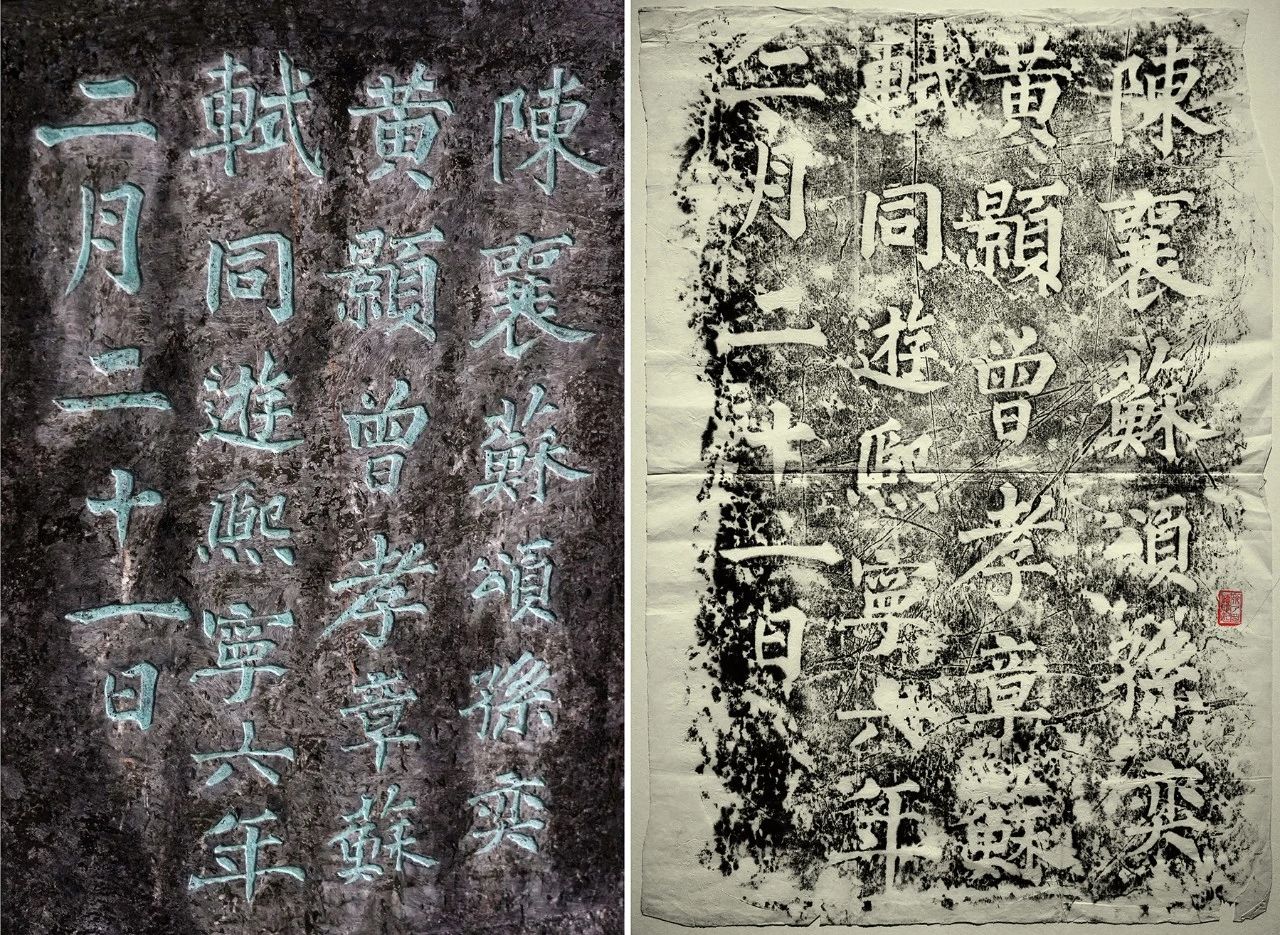 陳襄蘇頌孫奕
黃顥曾孝章蘇
軾同遊熙寧六年
二月二十一日
陳襄蘇頌孫奕
黃顥曾孝章蘇
軾同遊熙寧六年
二月二十一日